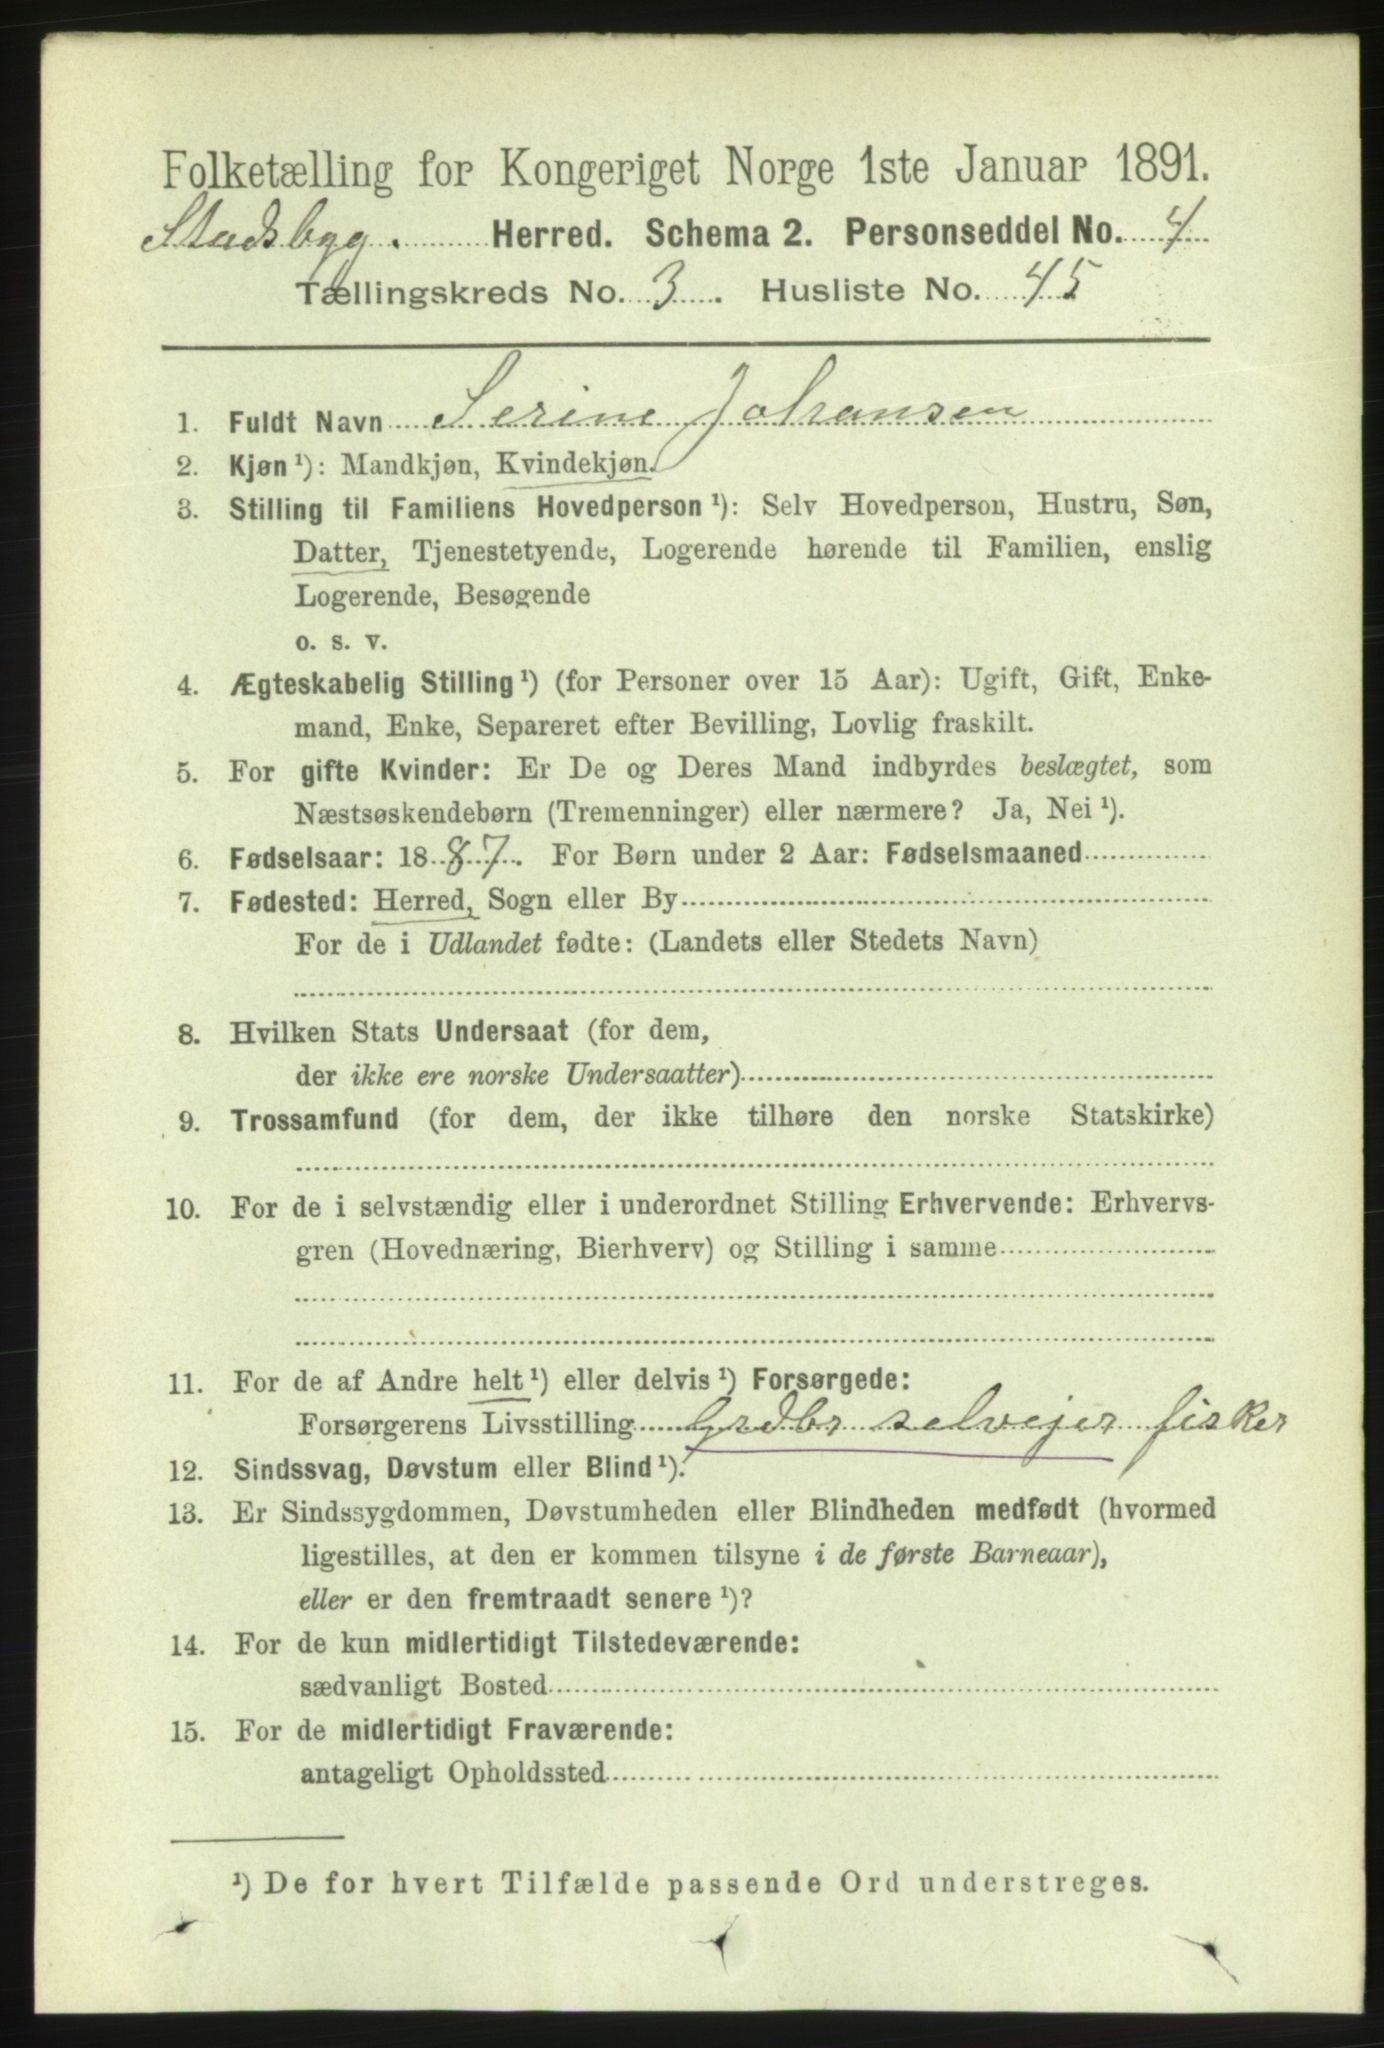 Folketælling for Kongeriget Norge 1ste Januar 1891.
Stadsbyg. Herred. Schema 2. Personseddel No. 4
Tællingskreds No. 3. Husliste No. 45
1. Fuldt Navn Serine Johansen
2. Kjøn ¹): Mandkjøn, Kvindekjøn.
3. Stilling til Familiens Hovedperson ¹): Selv Hovedperson, Hustru, Søn,
Datter, Tjenestetyende, Logerende hørende til Familien, enslig
Logerende, Besøgende
o. s. v.
4. Ægteskabelig Stilling ¹) (for Personer over 15 Aar): Ugift, Gift, Enke-
mand, Enke, Separeret efter Bevilling, Lovlig fraskilt.
5. For gifte Kvinder: Er De og Deres Mand indbyrdes beslægtet, som
Næstsøskendebørn (Tremenninger) eller nærmere? Ja, Nei ¹).
6. Fødselsaar: 1887. For Børn under 2 Aar: Fødselsmaaned
7. Fødested: Herred, Sogn eller By
For de i Udlandet fødte: (Landets eller Stedets Navn)
8. Hvilken Stats Undersaat (for dem,
der ikke ere norske Undersaatter)
9. Trossamfund (for dem, der ikke tilhøre den norske Statskirke)
10. For de i selvstændig eller i underordnet Stilling Erhvervende: Erhvervs-
gren (Hovednæring, Bierhverv) og Stilling i samme
11. For de af Andre helt ¹) eller delvis ¹) Forsørgede:
Forsørgerens Livsstilling Grdbr selvejer fisker
12. Sindssvag, Døvstum eller Blind ¹).
13. Er Sindssygdommen, Døvstumheden eller Blindheden medfødt (hvormed
ligestilles, at den er kommen tilsyne i de første Barneaar),
eller er den fremtraadt senere ¹)?
14. For de kun midlertidigt Tilstedeværende:
sædvanligt Bosted
15. For de midlertidigt Fraværende:
antageligt Opholdssted
¹) De for hvert Tilfælde passende Ord understreges.